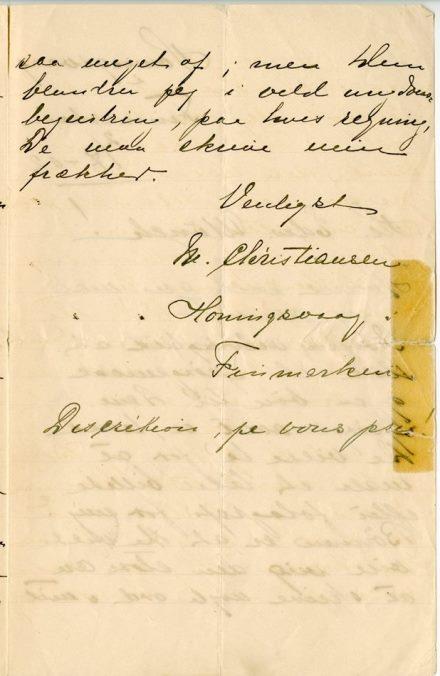 saa meget af; men dem
beundrer jeg i vild ungdoms-
begeistring, paa hvis regning,
De maa skrive min
frækhed.
Venligst
M. Christiansen
" " Honningsvaag "
Finmarken
Discrétion, je vous prie!